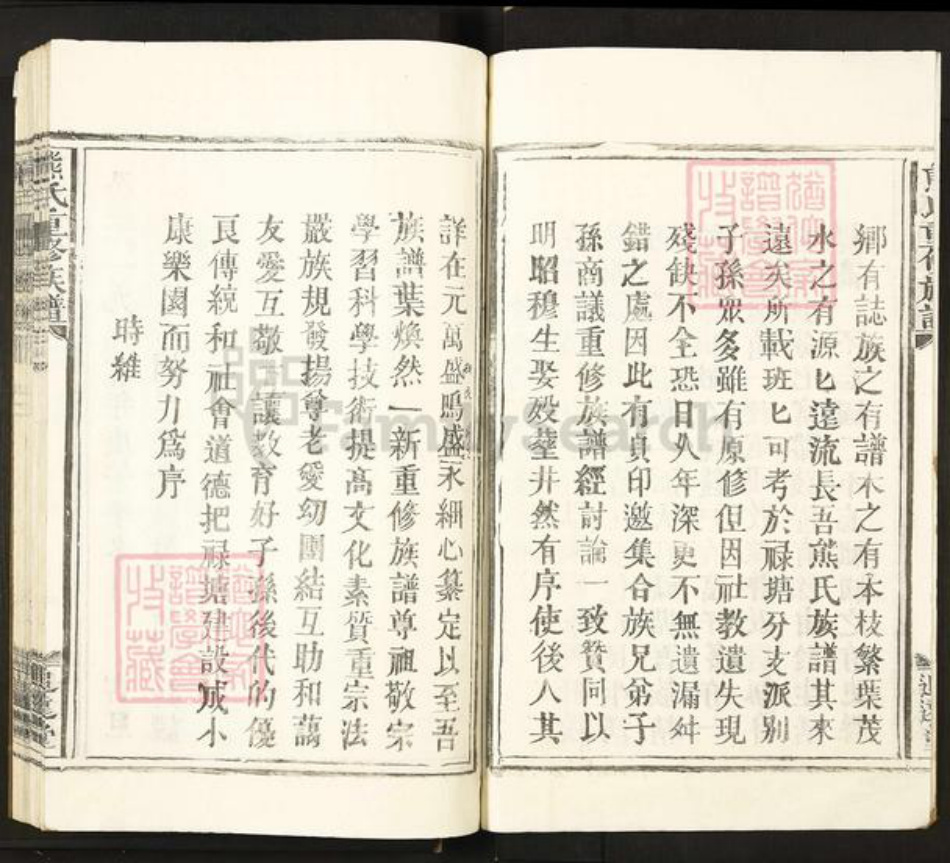 鄉有誌族之有譜木之有本枝繁葉茂
水之有源匕遠流長吾熊氏族譜其來
遠矣所載班匕可考於祿塘分支派別
子孫眾多雖有原修但因社教遺失現
殘缺不全恐日久年深更不無遺漏舛
錯之處因此有貞印邀集合族兄弟子
孫商議重修族譜經討論一致贊同以
明昭穆生娶歿塟井然有序使後人其
詳在元萬盛鳴盛永細心纂定以至吾
族譜葉煥然一新重修族譜尊祖敬宗
學習科學技術提高文化素質重宗法
嚴族規發揚尊老愛幼團結互助和藹
友愛互敬互讓教育好子孫後代的優
良傳統和社會道德把祿塘建設成小
康樂園而努力爲序
時維
熊氏重修族譜
FamilySearch
譜學會
收藏
譜學會
收藏